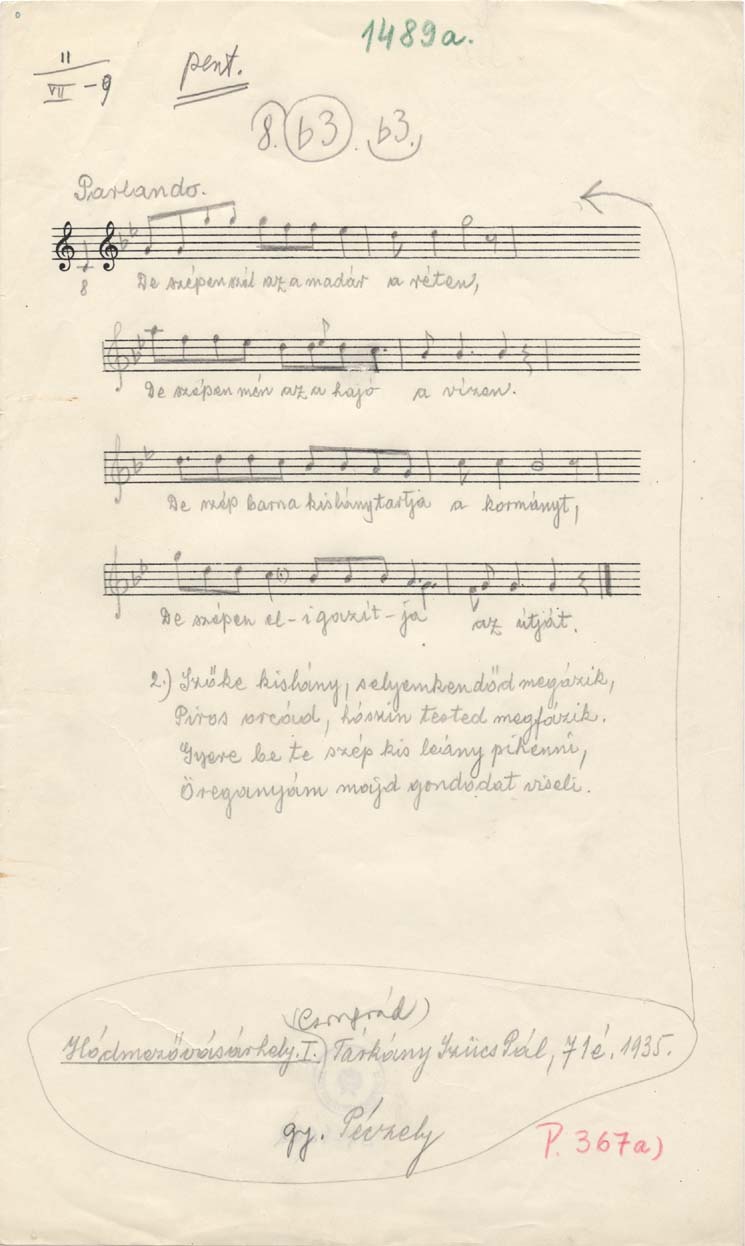 1489a.
11
VII -9
pent.
8. b3 . b3.
Parlando.
8
De szépen szól az a madár a réten,
De szépen mén az a hajó a vizen.
De szép barna kislány tartja a kormányt,
De szépen el-igazít-ja az útját.
2.) Szőke kislány, selyemkendőd megázik,
Piros orcád, hószin tested megfázik.
Gyere be te szép kis leány pihenni,
Öreganyám majd gondodat viseli.
(Csongrád)
Hódmezővásárhely. I. Tárkány Szücs Pál, 71é. 1935.
gy. Péczely
P. 367a)